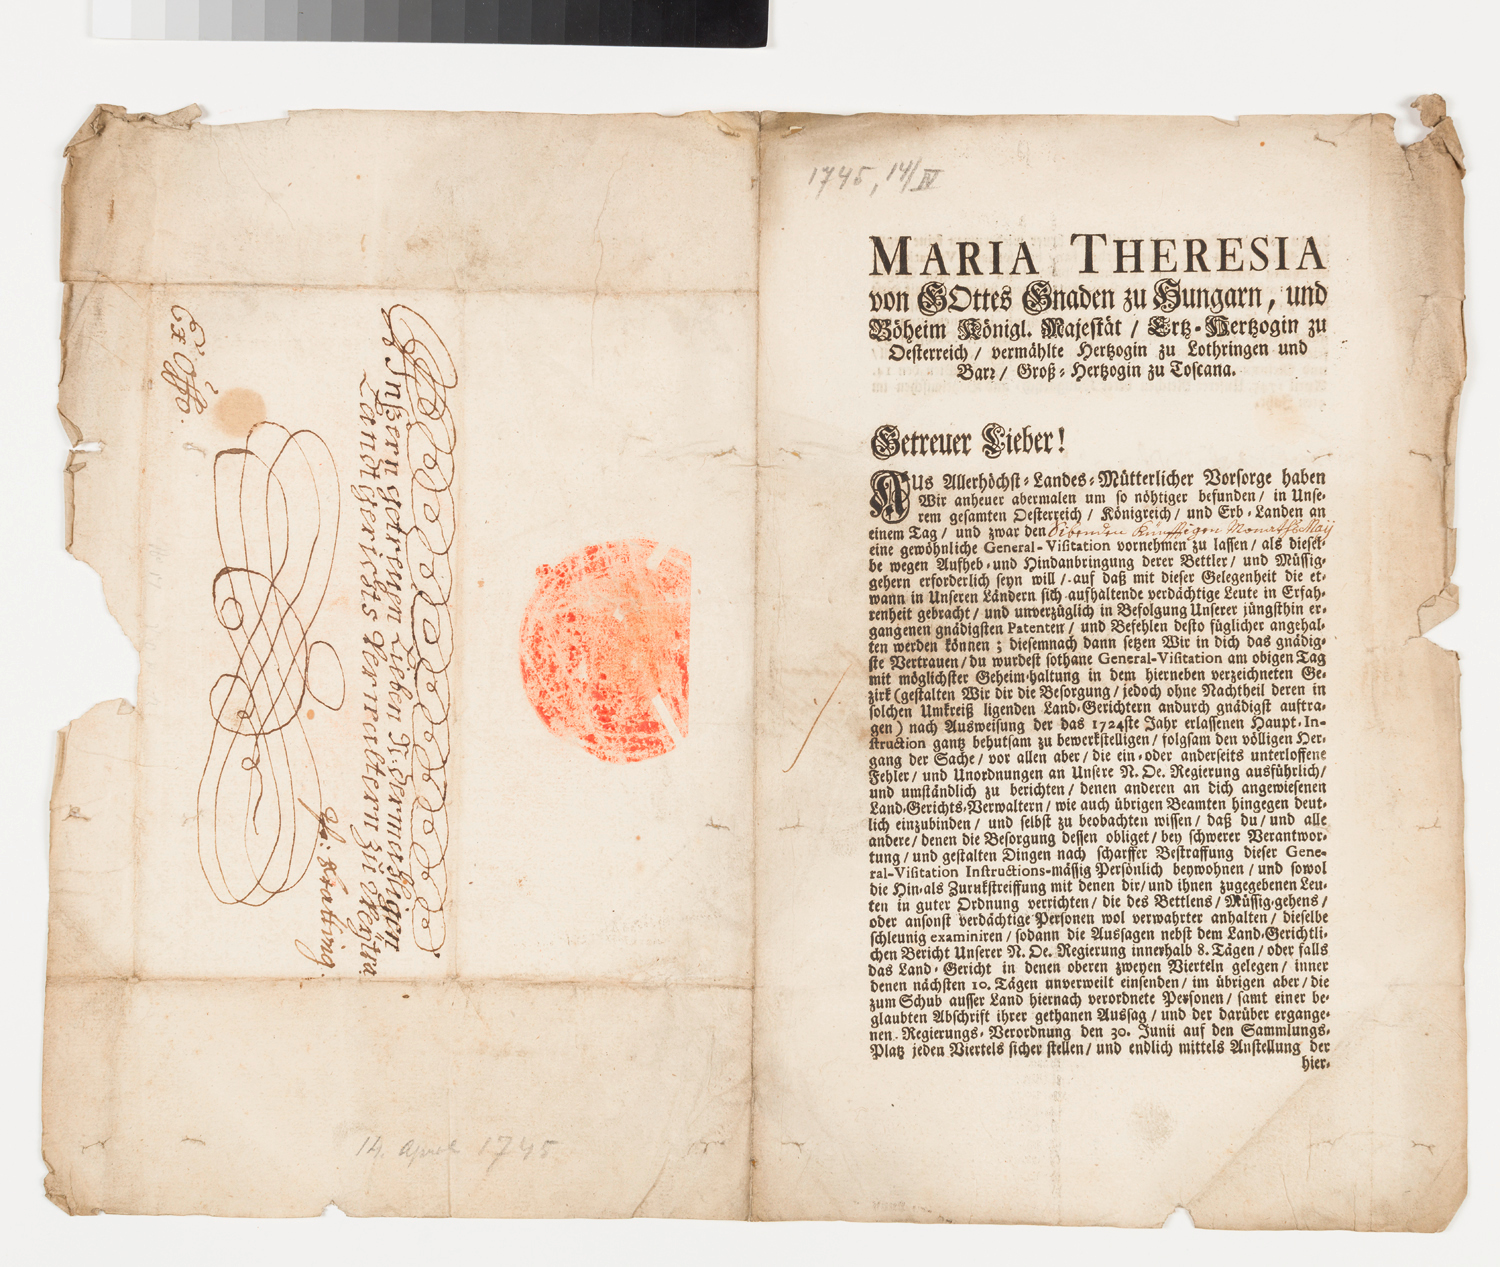 Ex Offo.
Unßern getreuen Lieben N: dermahligen
Landtgerichts Verwaltern zu
1745, 14/IV
MARIA THERESIA
von GOttes Gnaden zu Hungarn, und
Böheim Königl. Majestät / Ertz-Hertzogin zu
Oesterreich / vermählte Hertzogin zu Lothringen und
Barr / Groß-Hertzogin zu Toscana.
Getreuer Lieber!
AUs Allerhöchst-Landes-Mütterlicher Vorsorge haben
Wir anheuer abermalen um so nöhtiger befunden / in Unse-
rem gesamten Oesterreich / Königreich / und Erb-Landen an
einem Tag / und zwar den Sibenden Künfftigen Monaths Maÿ
eine gewöhnliche General-Visitation vornehmen zu lassen / als diesel-
be wegen Aufheb- und Hindanbringung derer Bettler / und Müssig-
gehern erforderlich seyn will / auf daß mit dieser Gelegenheit die et-
wann in Unseren Ländern sich aufhaltende verdächtige Leute in Erfah-
renheit gebracht / und unverzüglich in Befolgung Unserer jüngsthin er-
gangenen gnädigsten Patenten / und Befehlen desto füglicher angehal-
ten werden können ; diesemnach dann setzen Wir in dich das gnädig-
ste Vertrauen / du wurdest sothane General-Visitation am obigen Tag
mit möglichster Geheim-haltung in dem hierneben verzeichneten Ge-
zirk (gestalten Wir dir die Besorgung / jedoch ohne Nachtheil deren in
solchen Umkreiß ligenden Land-Gerichtern andurch gnädigst auftra-
gen) nach Ausweisung der das 1724ste Jahr erlassenen Haupt-In-
struction gantz behutsam zu bewerkstelligen / folgsam den völligen Her-
gang der Sache / vor allen aber / die ein- oder anderseits unterloffene
Fehler / und Unordnungen an Unsere N. Oe. Regierung ausführlich /
und umständlich zu berichten / denen anderen an dich angewiesenen
Land-Gerichts-Verwaltern / wie auch übrigen Beamten hingegen deut-
lich einzubinden / und selbst zu beobachten wissen / daß du / und alle
andere / denen die Besorgung dessen obliget / bey schwerer Verantwor-
tung / und gestalten Dingen nach scharffer Bestraffung dieser Gene-
ral-Visitation Instructions-mässig Persönlich beywohnen / und sowol
die Hin- als Zurukstreiffung mit denen dir / und ihnen zugegebenen Leu-
ten in guter Ordnung verrichten / die des Bettlens / Müssig-gehens /
oder ansonst verdächtige Personen wol verwahrter anhalten / dieselbe
schleunig examiniren / sodann die Aussagen nebst dem Land-Gerichtli-
chen Bericht Unserer N. Oe. Regierung innerhalb 8. Tägen / oder falls
das Land-Gericht in denen oberen zweyen Vierteln gelegen / inner
denen nächsten 10. Tägen unverweilt einsenden / im übrigen aber / die
zum Schub ausser Land hiernach verordnete Personen / samt einer be-
glaubten Abschrift ihrer gethanen Aussag / und der darüber ergange-
nen Regierungs-Verordnung den 30. Junii auf den Sammlungs-
Platz jeden Viertels sicher stellen / und endlich mittels Anstellung der
hier-
14. April 1745